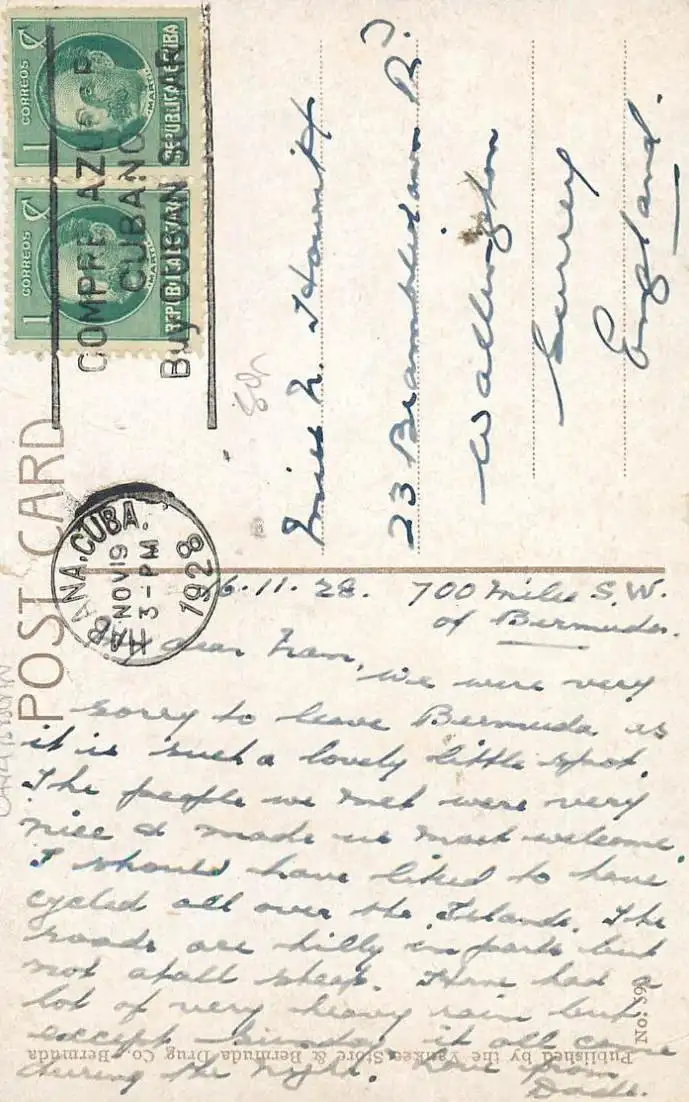 CORREOS
1
MARTI
REPUBLICA DE CUBA
CORREOS
1
MARTI
REPUBLICA DE CUBA
COMPRE AZUCAR
CUBANO
Buy CUBAN SUGAR
POST CARD
HABANA. CUBA.
NOV 19
3-PM
1928
Miss N.
23 Rd.
Wallington
Surrey
England.
16.11.28. 700 miles S.W.
of Bermuda.
Dear
We were very
sorry to leave Bermuda as
it is such a lovely little spot.
The people we met were very
nice & made us most welcome.
I should have liked to have
cycled all over the Islands. The
roads are hilly in parts but
not atall steep. Have had a
lot of very heavy rain but
except Sunday it all came
during the night. Love from
No. 59
Published by the Yankee Store & Bermuda Drug Co. Bermuda